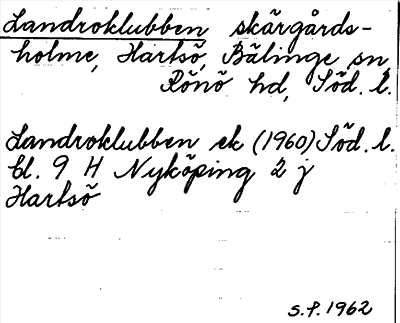 Landroklubben skärgårds-
holme, Hartsö, Bälinge sn,
Rönö hd, Söd. l.
Landroklubben ek (1960) Söd. l.
bl. 9 H Nyköping 2 j
Hartsö
S.P. 1962